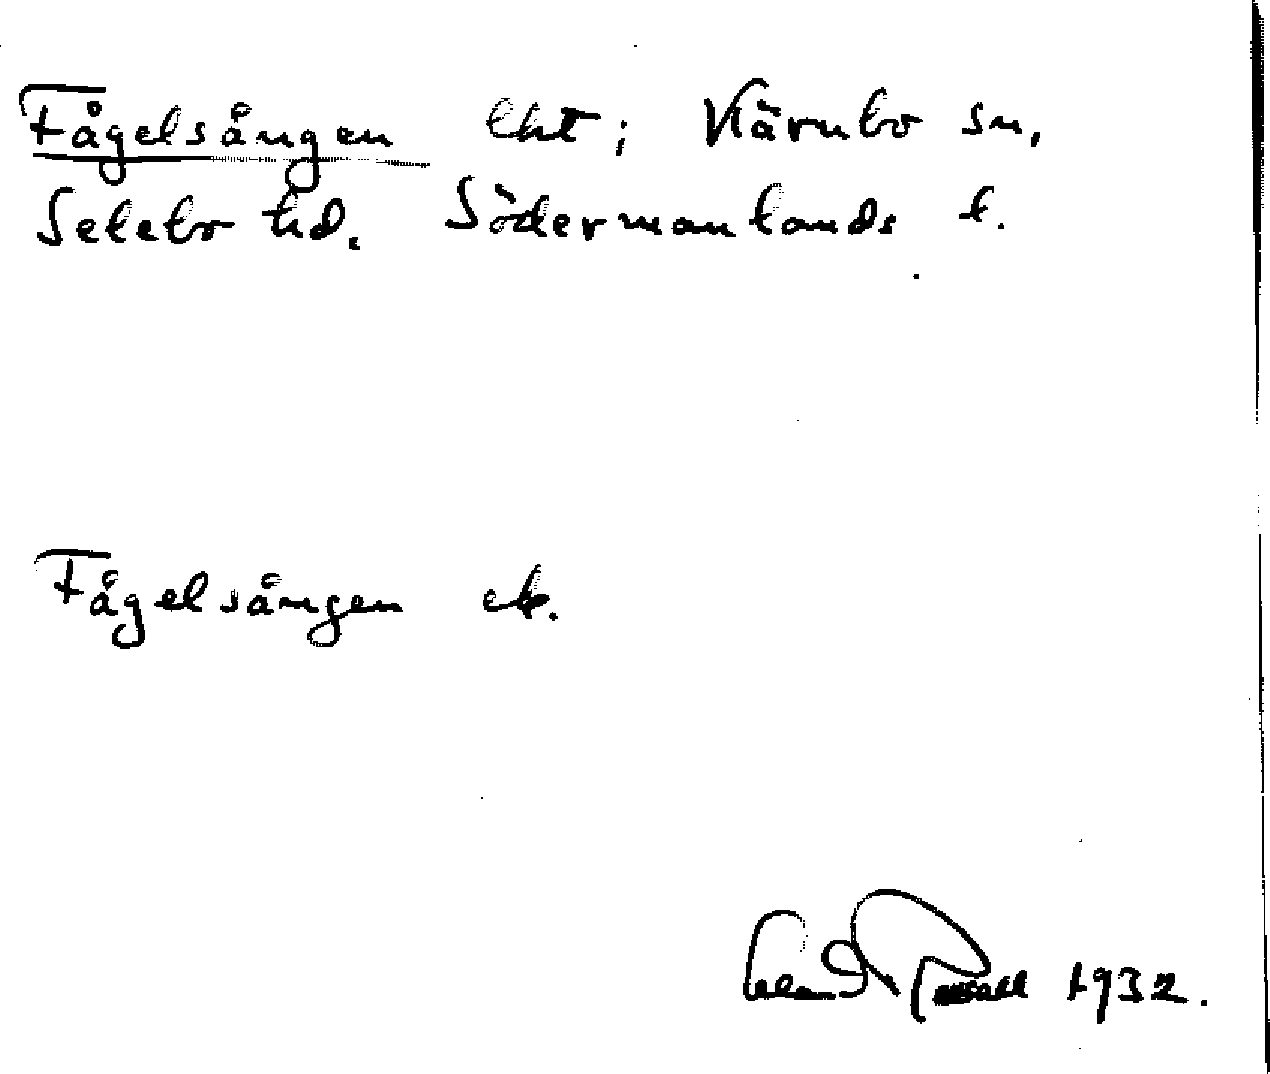 Fågelsången lht; Kärnbo sn,
Selebo hd. Södermanlands l.
Fågelsången ek.
1932.